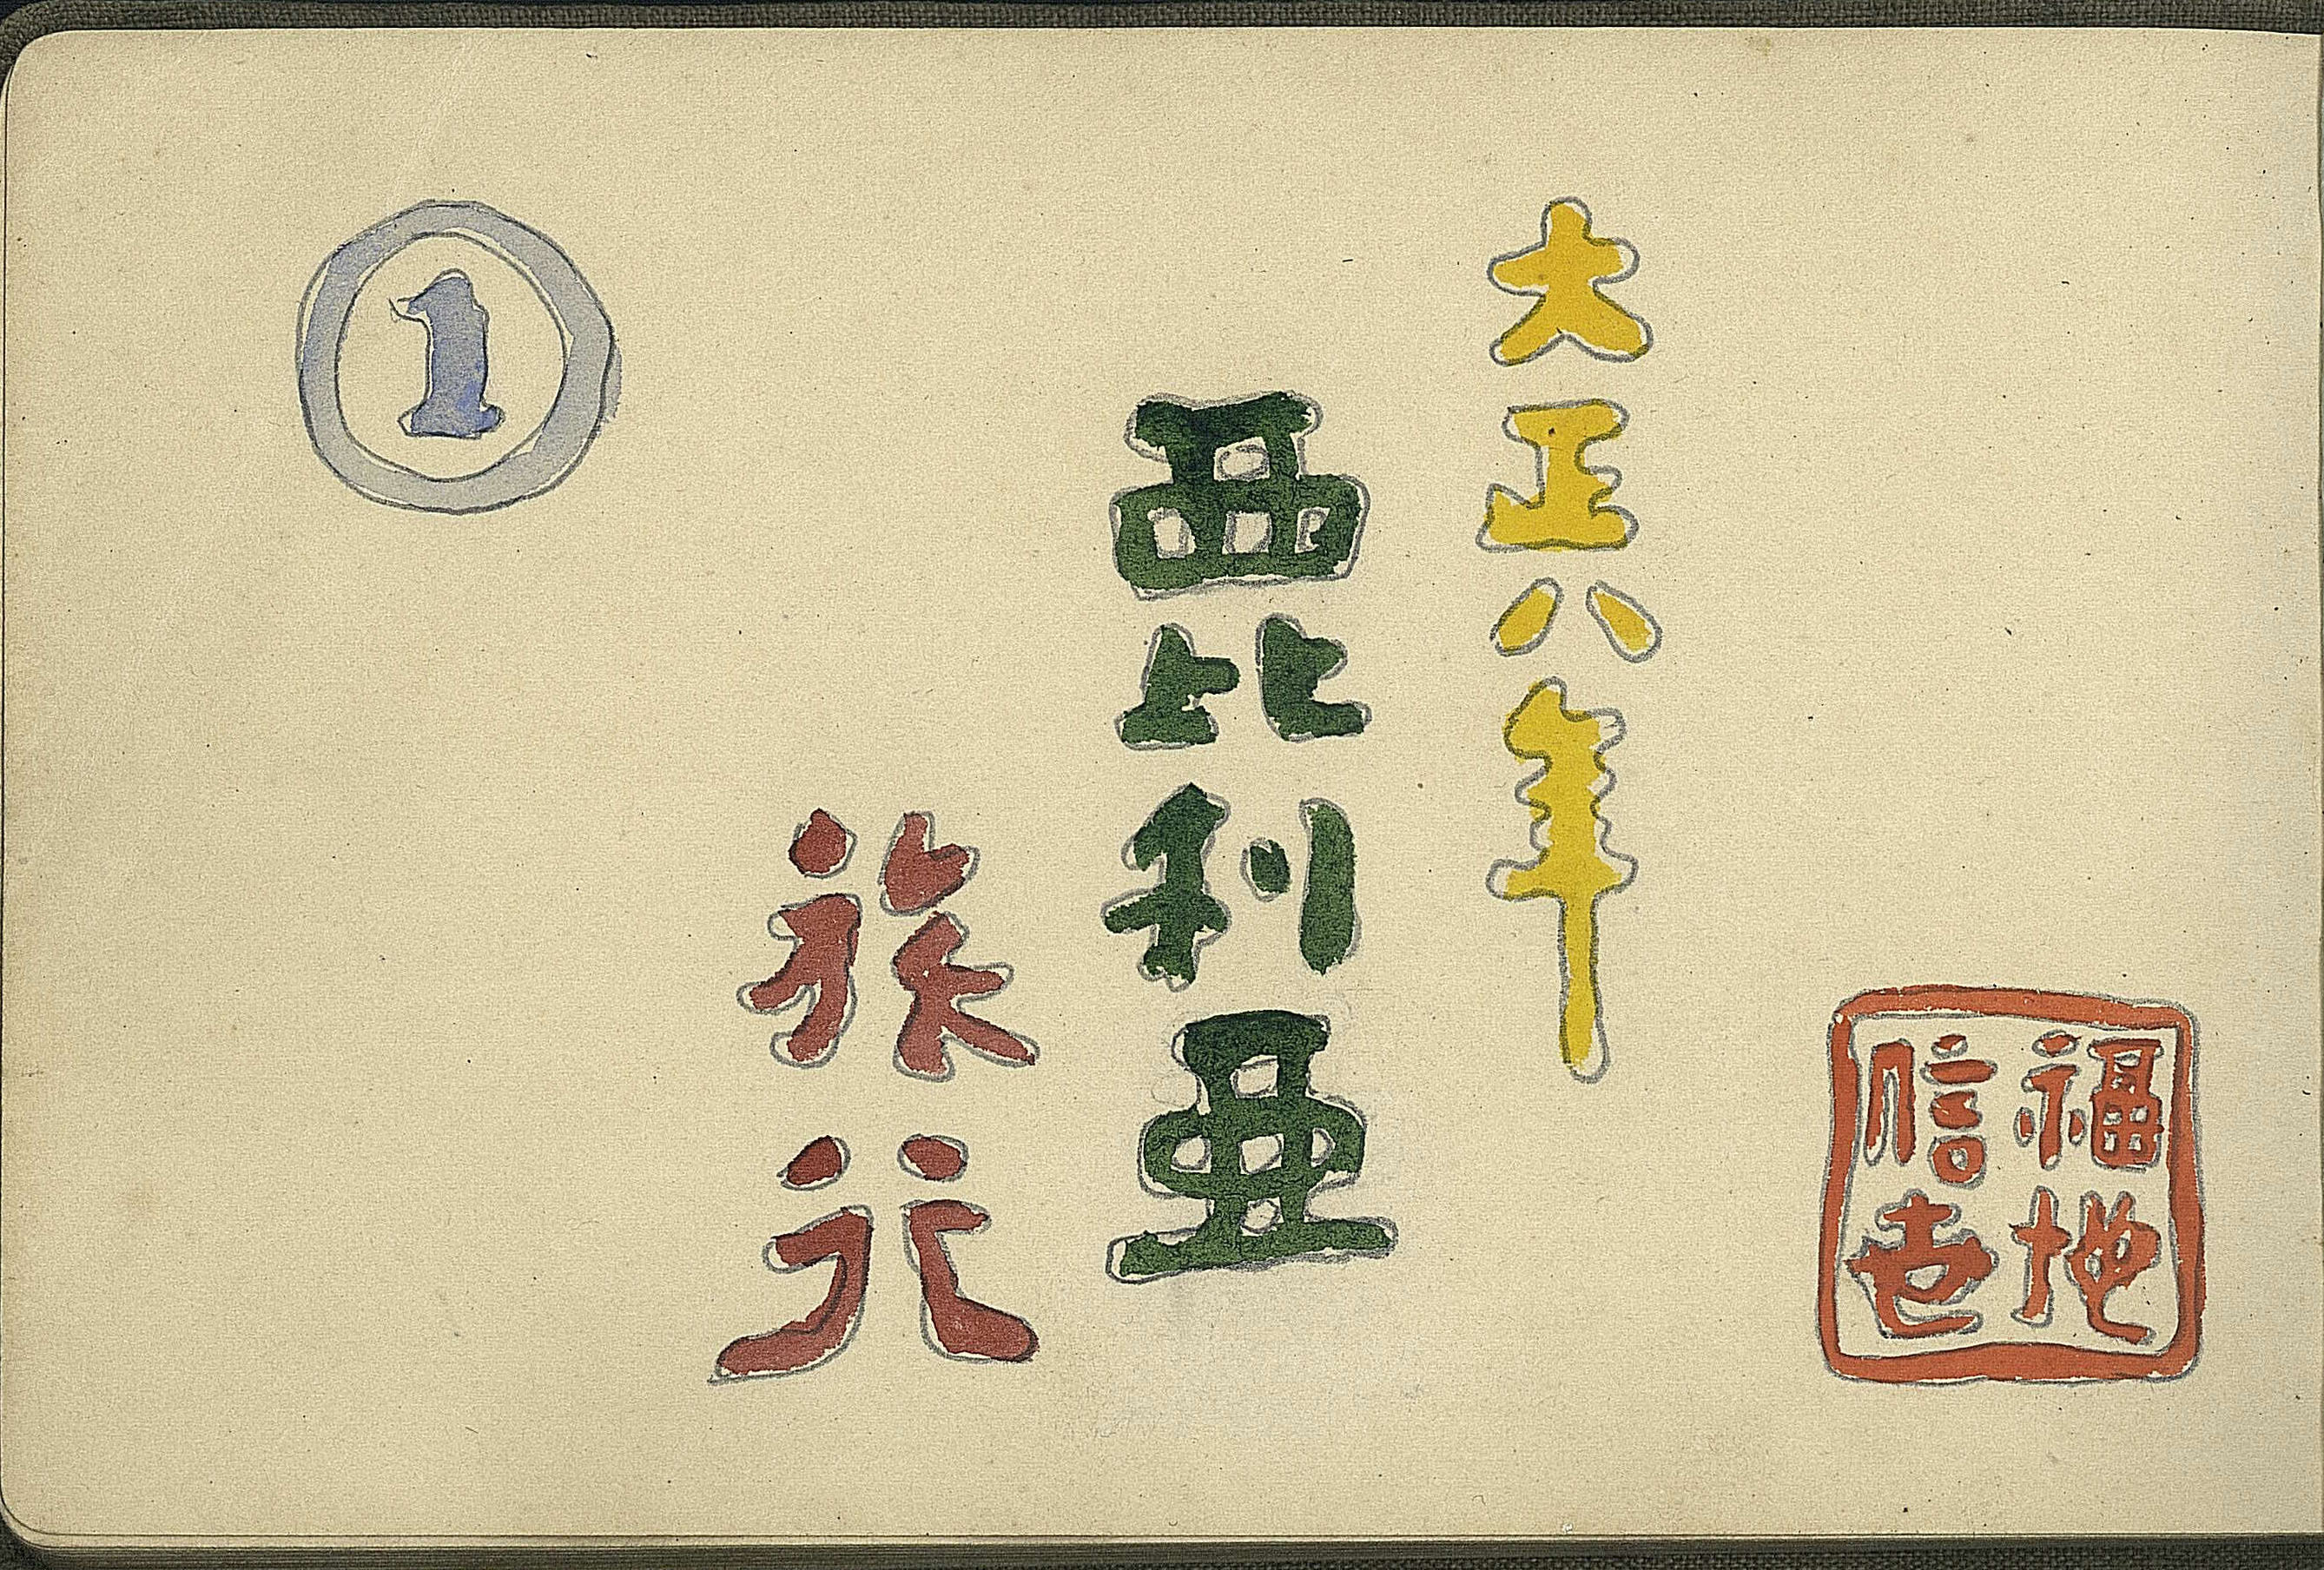 大正八年
西比利亜
旅行
1
福地
信世